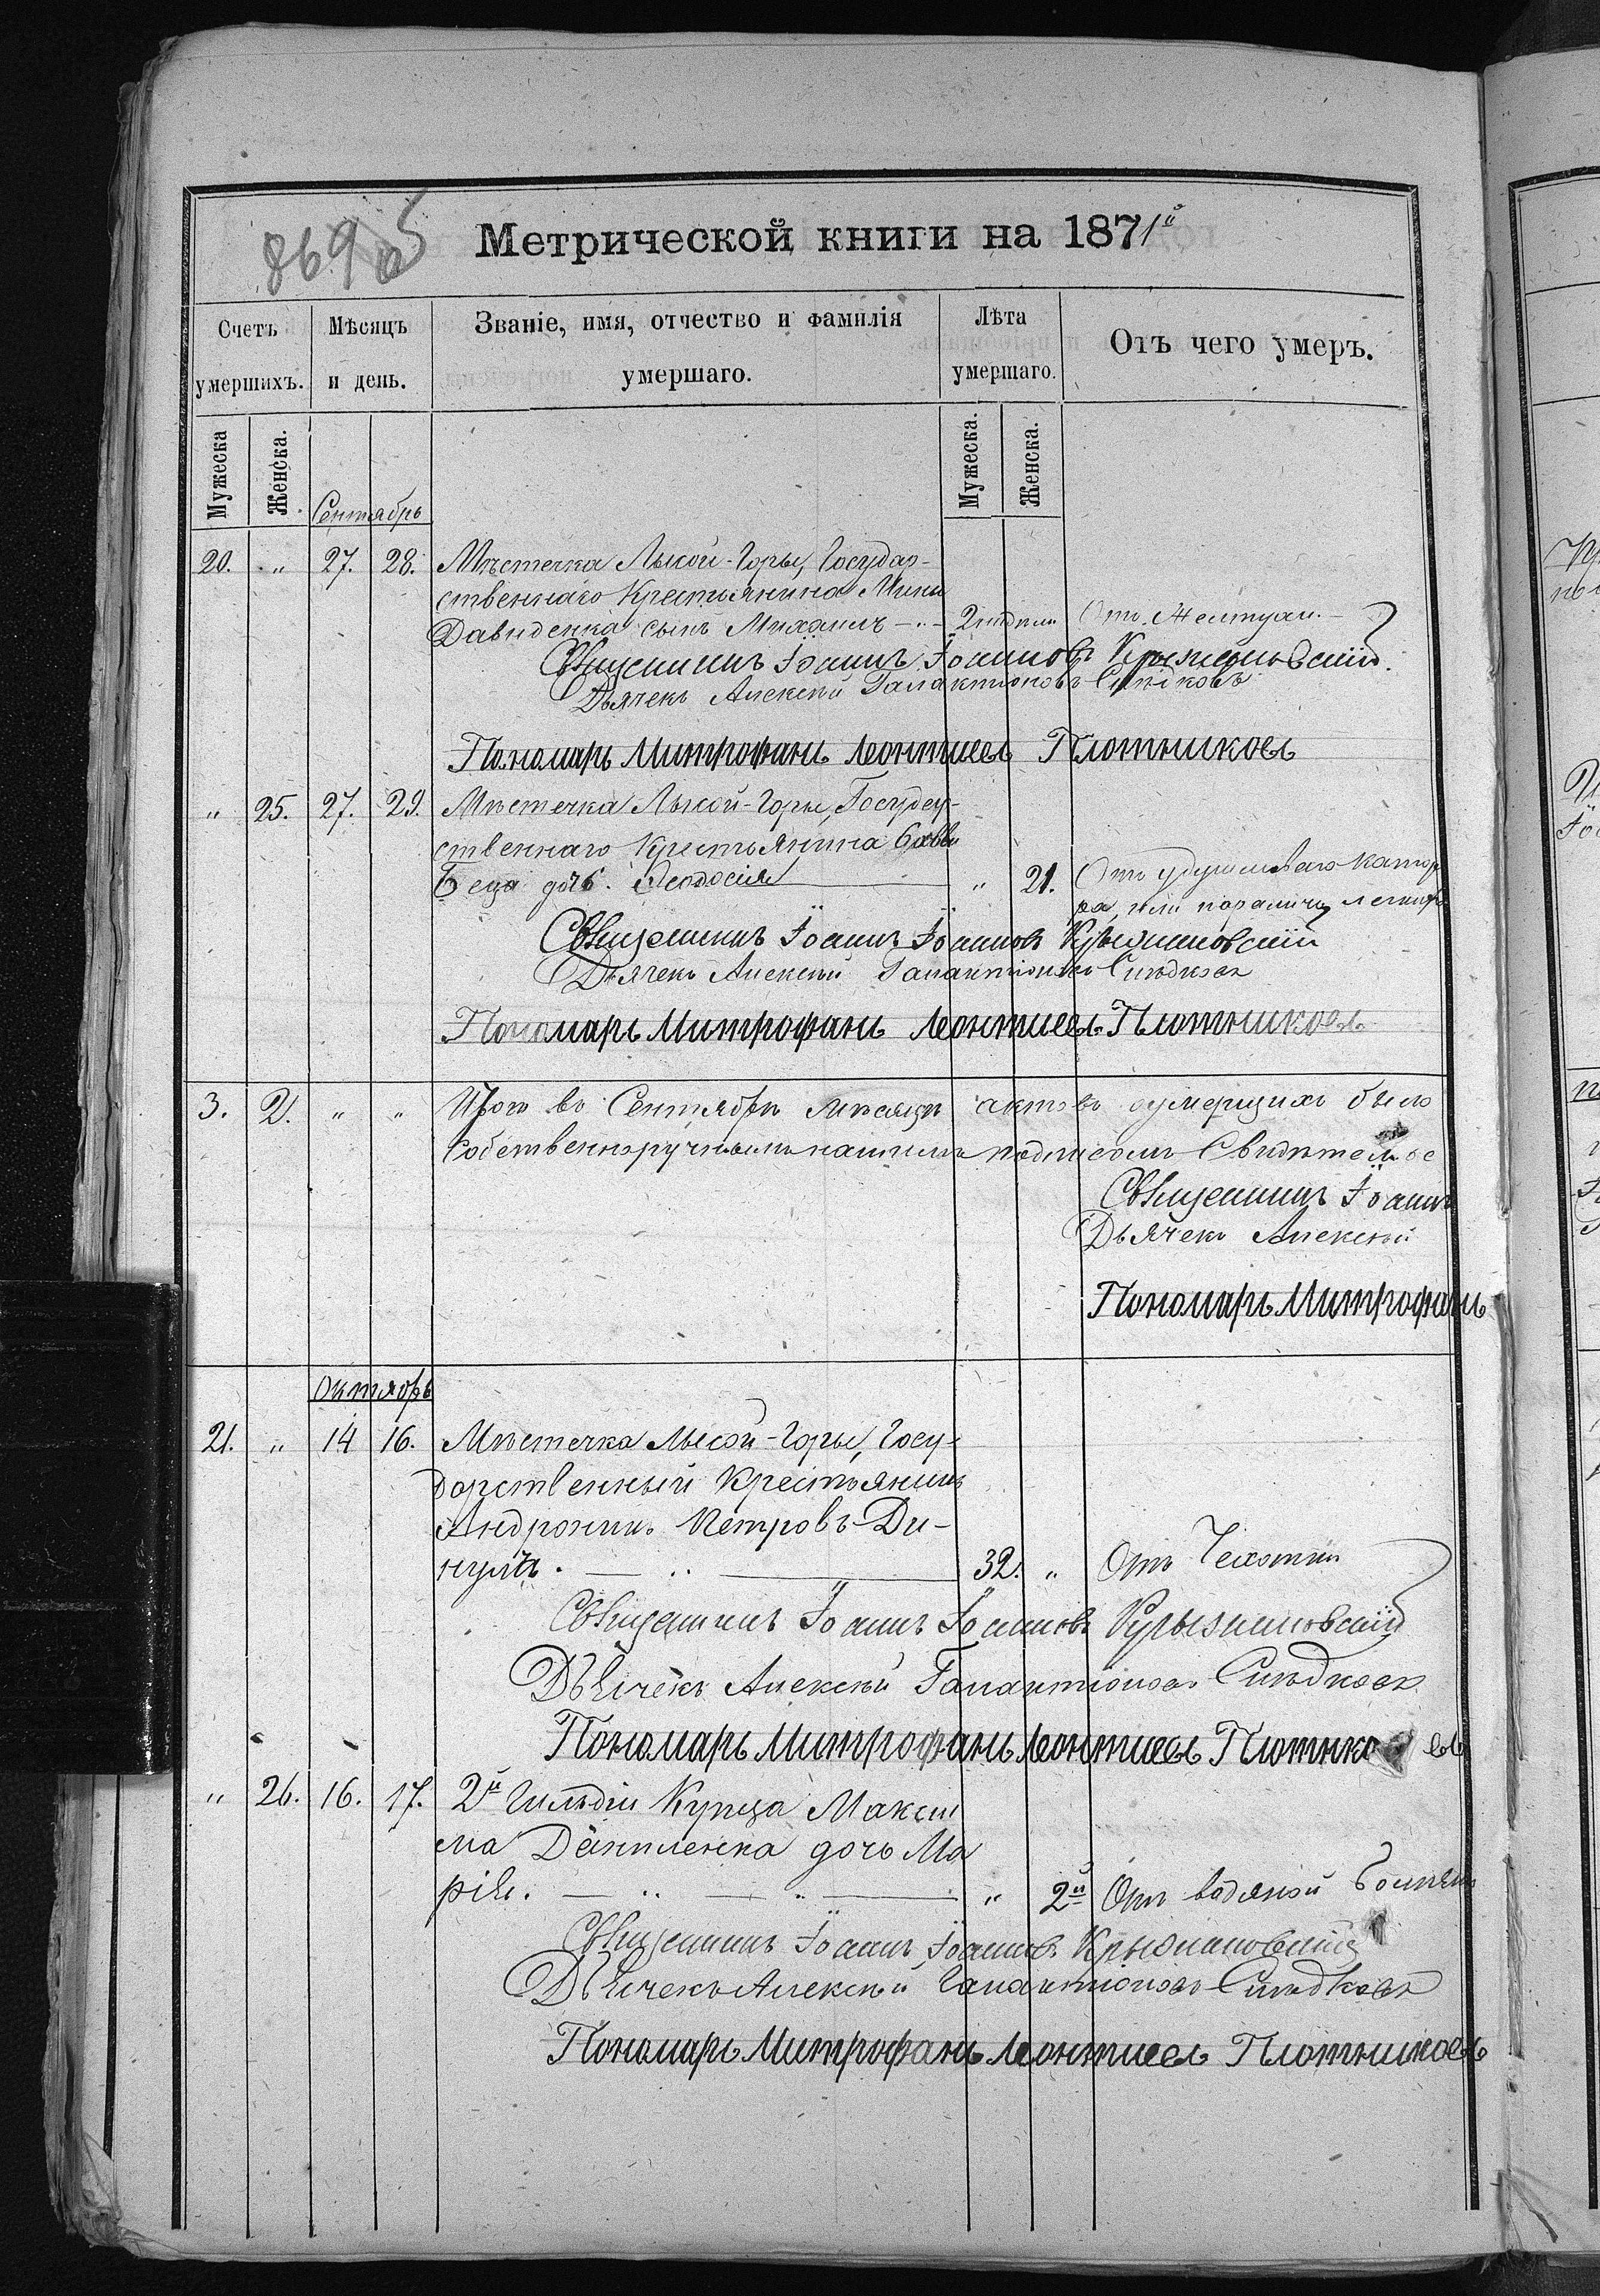 869 об
Метрической книги на 1871й
Счетъ умершихъ.
Мѣсяцъ и день.
Званіе, имя, отчество и фамилія умершаго.
Лѣта умершаго.
Отъ чего умеръ.
Мужеска
Женска.
Мужеска.
Женска.
Сентябрь
20. " 27. 28. Мѣстечка Лысой-Горы, Государ-
ственнаго Крестьянина
Давиденка сынъ Михаилъ
Священникъ Іоаннъ Іоанновъ Крыжановскій
Дьячекъ Алексѣй Галактіоновъ
Пономарь Митрофанъ Леонтиевъ Плотниковъ
" 25. 27. 29. Мѣстечка Лысой-Горы, Государ-
ственнаго Крестьянина Саввы
дочь Ѳеодосія " 21. Отъ удушливаго катар
ра, или паралича легких
Священникъ Іоаннъ Іоанновъ Крыжановскій
Дьячекъ Алексѣй Галактіоновъ
Пономарь Митрофанъ Леонтиевъ Плотниковъ
3. 2. " " Итого въ Сентябрѣ мѣсяцѣ актовъ умершихъ было
Собственноручнымъ нашимъ подписомъ Свидѣтельс
Священникъ Іоаннъ
Дьячекъ Алексѣй
Пономарь Митрофанъ
Октябрь
21. " 14 16. Мѣстечка Лысой-Горы, Госу-
дарственный Крестьянинъ
Андроникъ Петровъ Ди-
32. " Отъ Чехотки
Священникъ Іоаннъ Іоанновъ Крыжановскій
Дьячекъ Алексѣй Галактіоновъ
Пономарь Митрофанъ Леонтиевъ Плотнико евъ
" 26. 16. 17. 2й Гильдіи Купца Макси
ма дочь Ма
рія. " 2й Отъ водяной болѣзни
Священникъ Іоаннъ Іоанновъ Крыжановскій
Дьячекъ Алексѣй Галактіоновъ
Пономарь Митрофанъ Леонтиевъ Плотниковъ